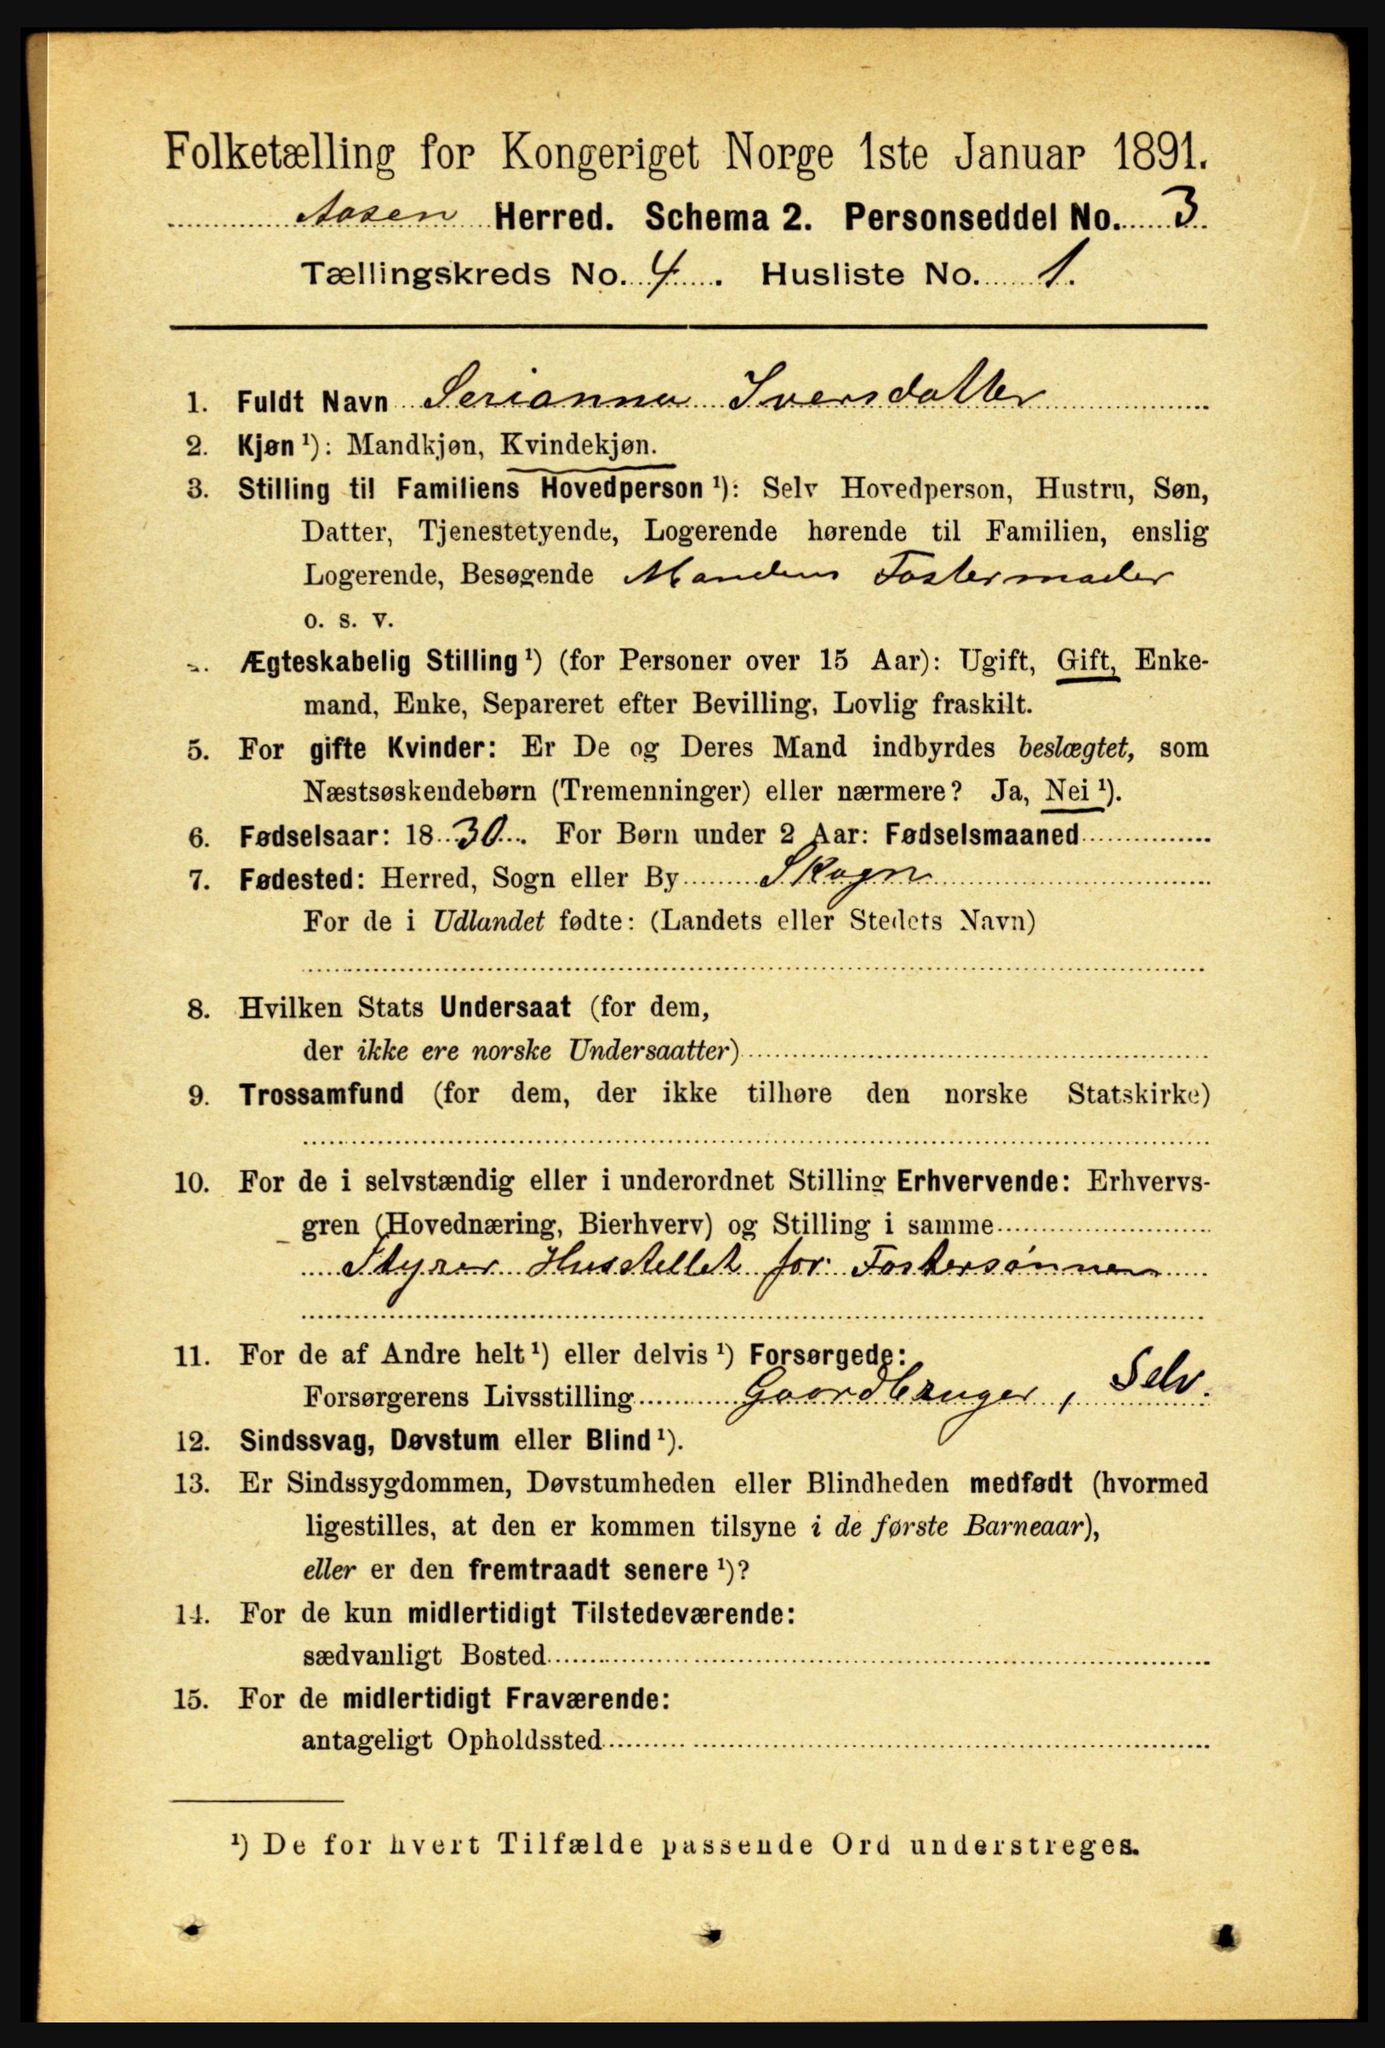 Folketælling for Kongeriget Norge 1ste Januar 1891.
Aasen Herred. Schema 2. Personseddel No. 3
Tællingskreds No. 4. Husliste No. 1.
1. Fuldt Navn Serianna Iversdatter
2. Kjøn ¹): Mandkjøn, Kvindekjøn.
3. Stilling til Familiens Hovedperson ¹): Selv Hovedperson, Hustru, Søn,
Datter, Tjenestetyende, Logerende hørende til Familien, enslig
Logerende, Besøgende Mandens Fostermoder
o. s. v.
Ægteskabelig Stilling ¹) (for Personer over 15 Aar): Ugift, Gift, Enke-
mand, Enke, Separeret efter Bevilling, Lovlig fraskilt.
5. For gifte Kvinder: Er De og Deres Mand indbyrdes beslægtet, som
Næstsøskendebørn (Tremenninger) eller nærmere? Ja, Nei ¹).
6. Fødselsaar: 1830. For Børn under 2 Aar: Fødselsmaaned
7. Fødested: Herred, Sogn eller By Skogn
For de i Udlandet fødte: (Landets eller Stedets Navn)
8. Hvilken Stats Undersaat (for dem,
der ikke ere norske Undersaatter)
9. Trossamfund (for dem, der ikke tilhøre den norske Statskirke)
10. For de i selvstændig eller i underordnet Stilling Erhvervende: Erhvervs-
gren (Hovednæring, Bierhverv) og Stilling i samme
Styrer Husstellet for Fostersønnen
11. For de af Andre helt ¹) eller delvis ¹) Forsørgede:
Forsørgerens Livsstilling Gaardbruger, Selv.
12. Sindssvag, Døvstum eller Blind ¹).
13. Er Sindssygdommen, Døvstumheden eller Blindheden medfødt (hvormed
ligestilles, at den er kommen tilsyne i de første Barneaar),
eller er den fremtraadt senere ¹)?
14. For de kun midlertidigt Tilstedeværende:
sædvanligt Bosted
15. For de midlertidigt Fraværende:
antageligt Opholdssted
¹) De for hvert Tilfælde passende Ord understreges.